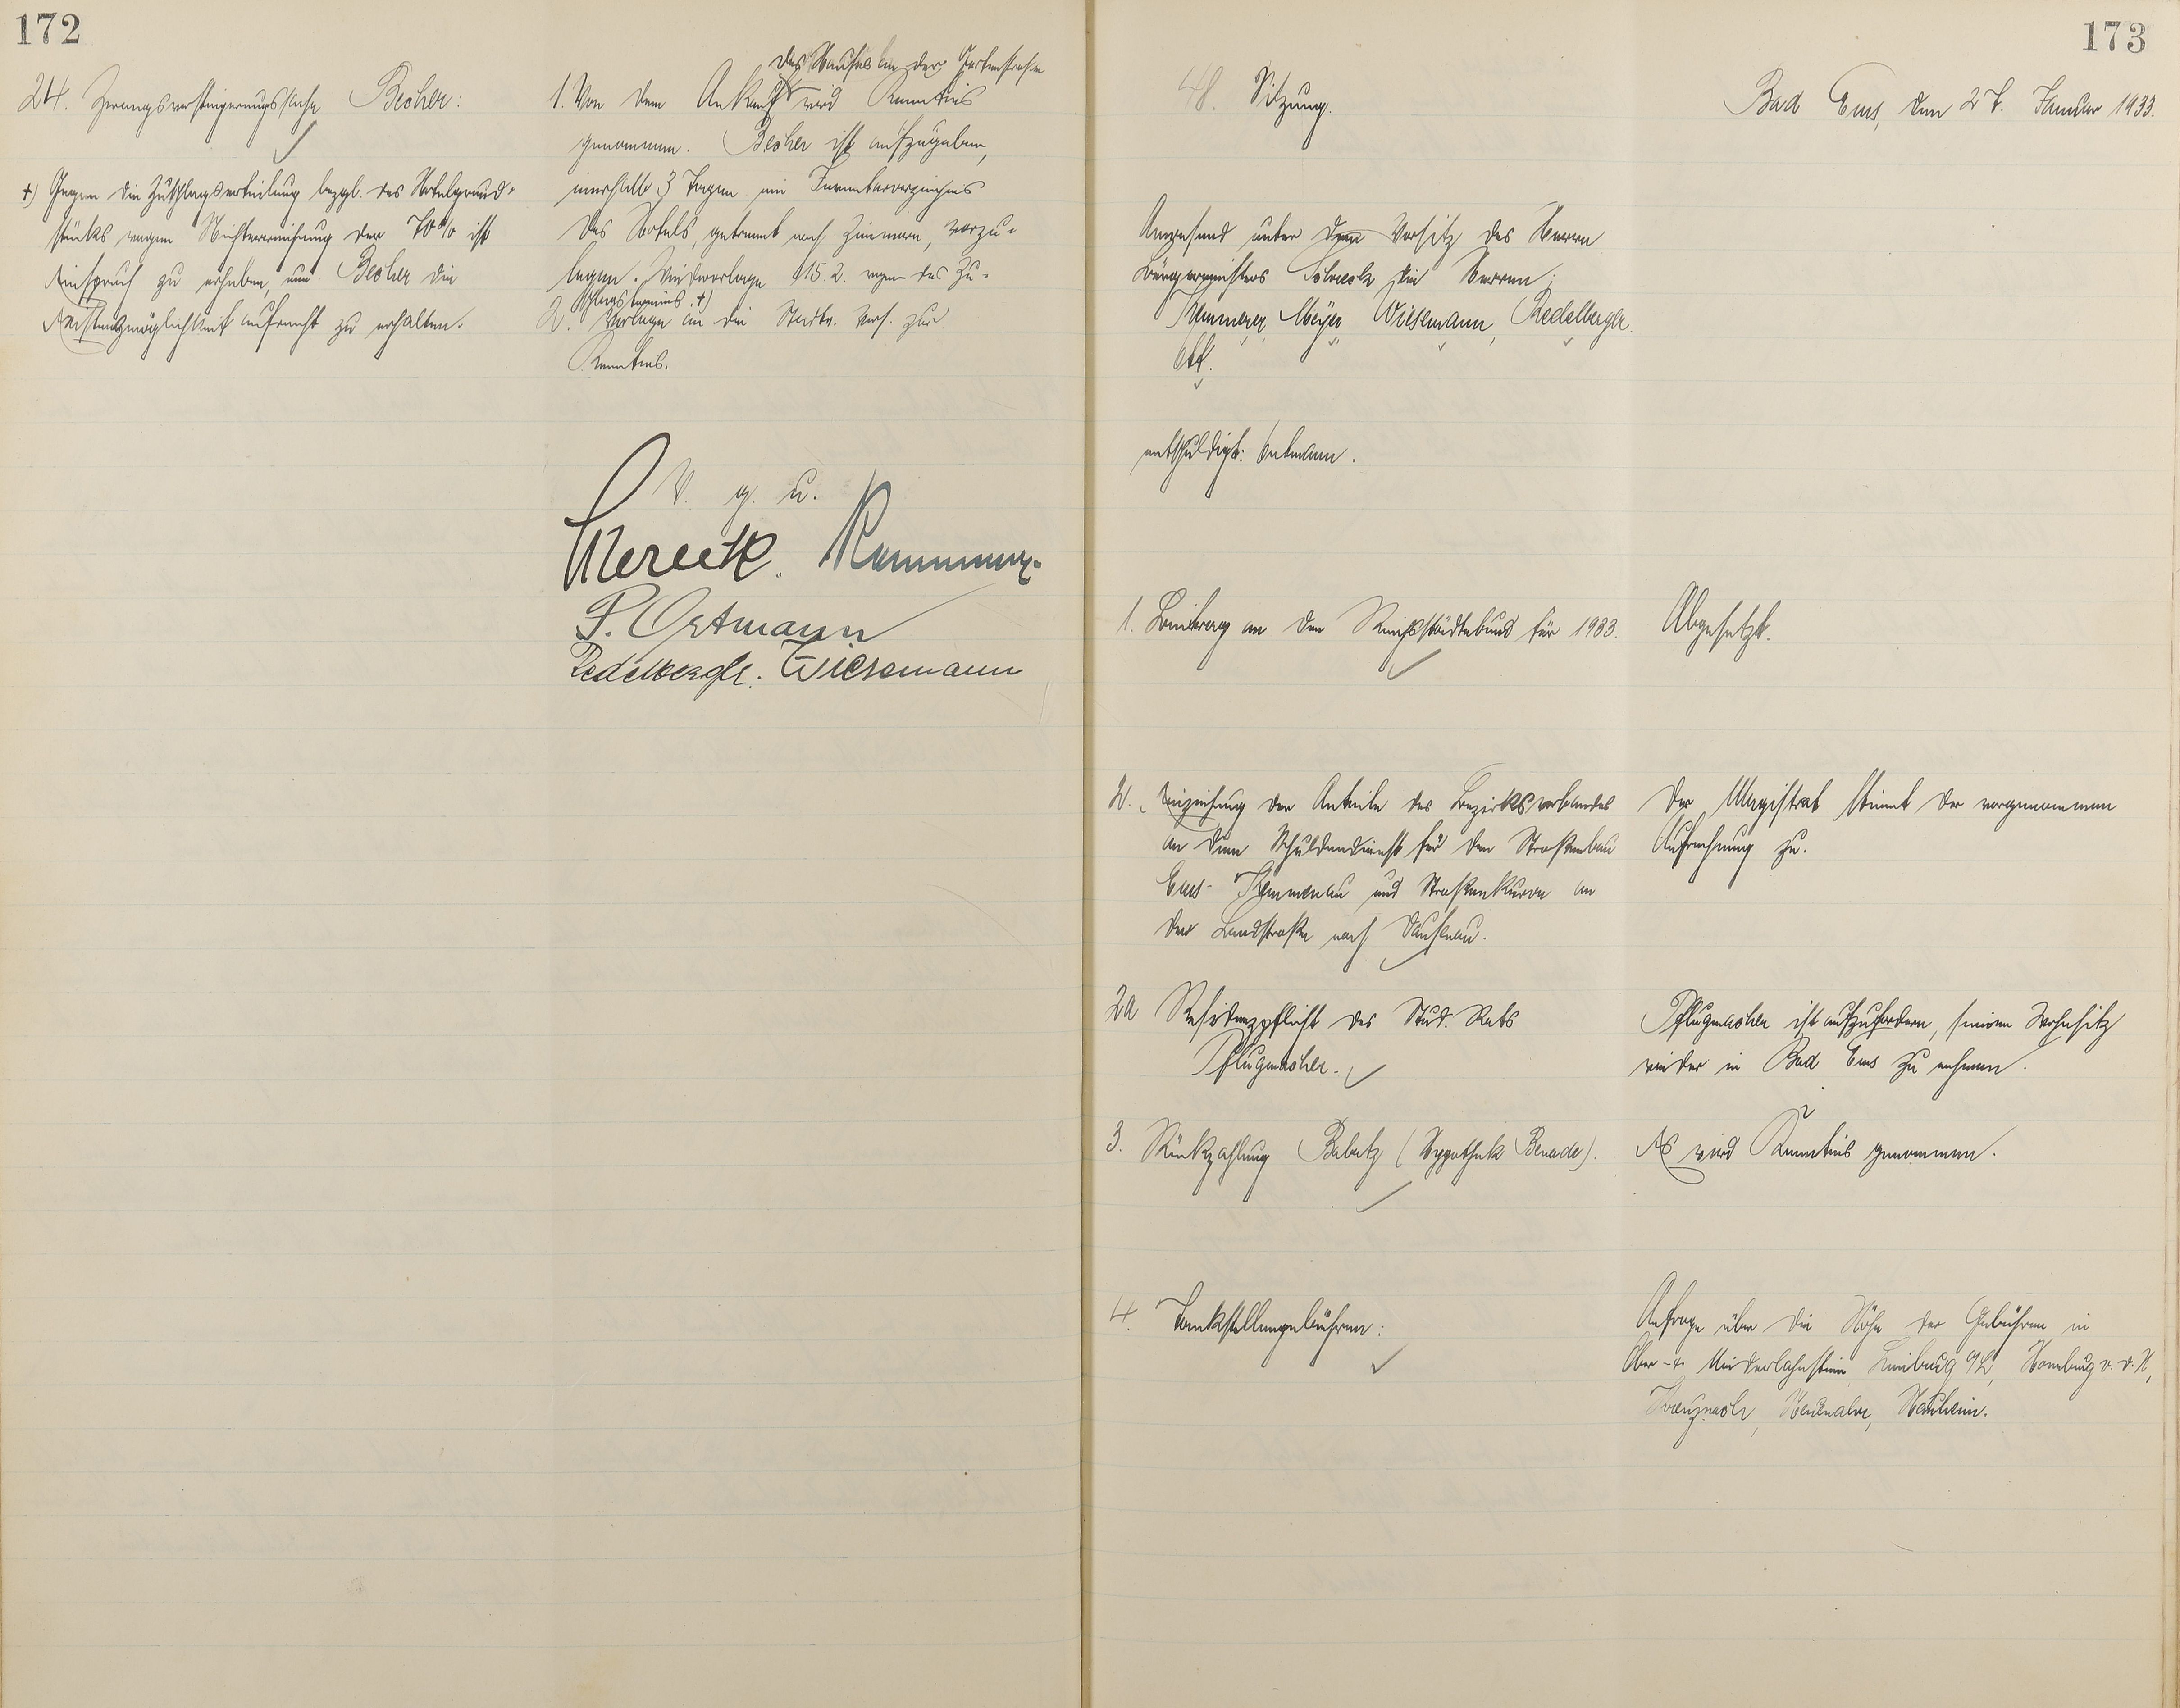 172
24. Zwangsversteigerungssache Becher:
+) Gegen die Zuschlagserteilung bezgl. des Hotelgrund-
stücks wegen Nichterreichung der 70% ist
Einspruch zu erheben, um Becher die
Existenzmöglichkeit aufrecht zu erhalten.
des Hauses in der Gartenstrasse
1. Von dem Ankauf wird Kenntnis
genommen. Becher ist aufzugeben,
innerhalb 3 Tagen ein Inventarverzeichnis
des Hotels, getrennt nach Zimmern, vorzu-
legen. Wiedervorlage 15.2. wegen des Zu-
schlagstermins. +)
2. Vorlage an die Stadtv. Vers. zur
Kenntnis.
V. g. u.
Kemmerer
P. Ortmann
Redelberger. Wiesemann
173
48. Sitzung.
Bad Ems, den 27. Januar 1933.
Anwesend unter dem Vorsitz des Herrn
Bürgermeisters die Herren:
Kemmerer, Meyer, Wiesemann, Redelberger
Ott.
entschuldigt: Ortmann.
1. Beitrag an den Reichsstädtebund für 1933.
Abgesetzt.
2. Einziehung der Anteile des Bezirksverbandes
an dem Schuldendienst für den Straßenbau
Ems-Kemmenau und Straßenkurve an
der Landstraße nach Dausenau.
Der Magistrat stimmt der vorgenommenen
Aufrechnung zu.
2a Residenzpflicht des Stud. Rats
Pflugmacher.
Pflugmacher ist aufzufordern, seinen Wohnsitz
wieder in Bad Ems zu nehmen.
3. Rückzahlung Babatz (Hypothek Benade).
Es wird Kenntnis genommen.
4. Tankstellengebühren:
Anfrage über die Höhe der Gebühren in
Ober- & Niederlahnstein Limburg a/L, Homburg v. d. H,
Kreuznach, Neuenahr, Nauheim.